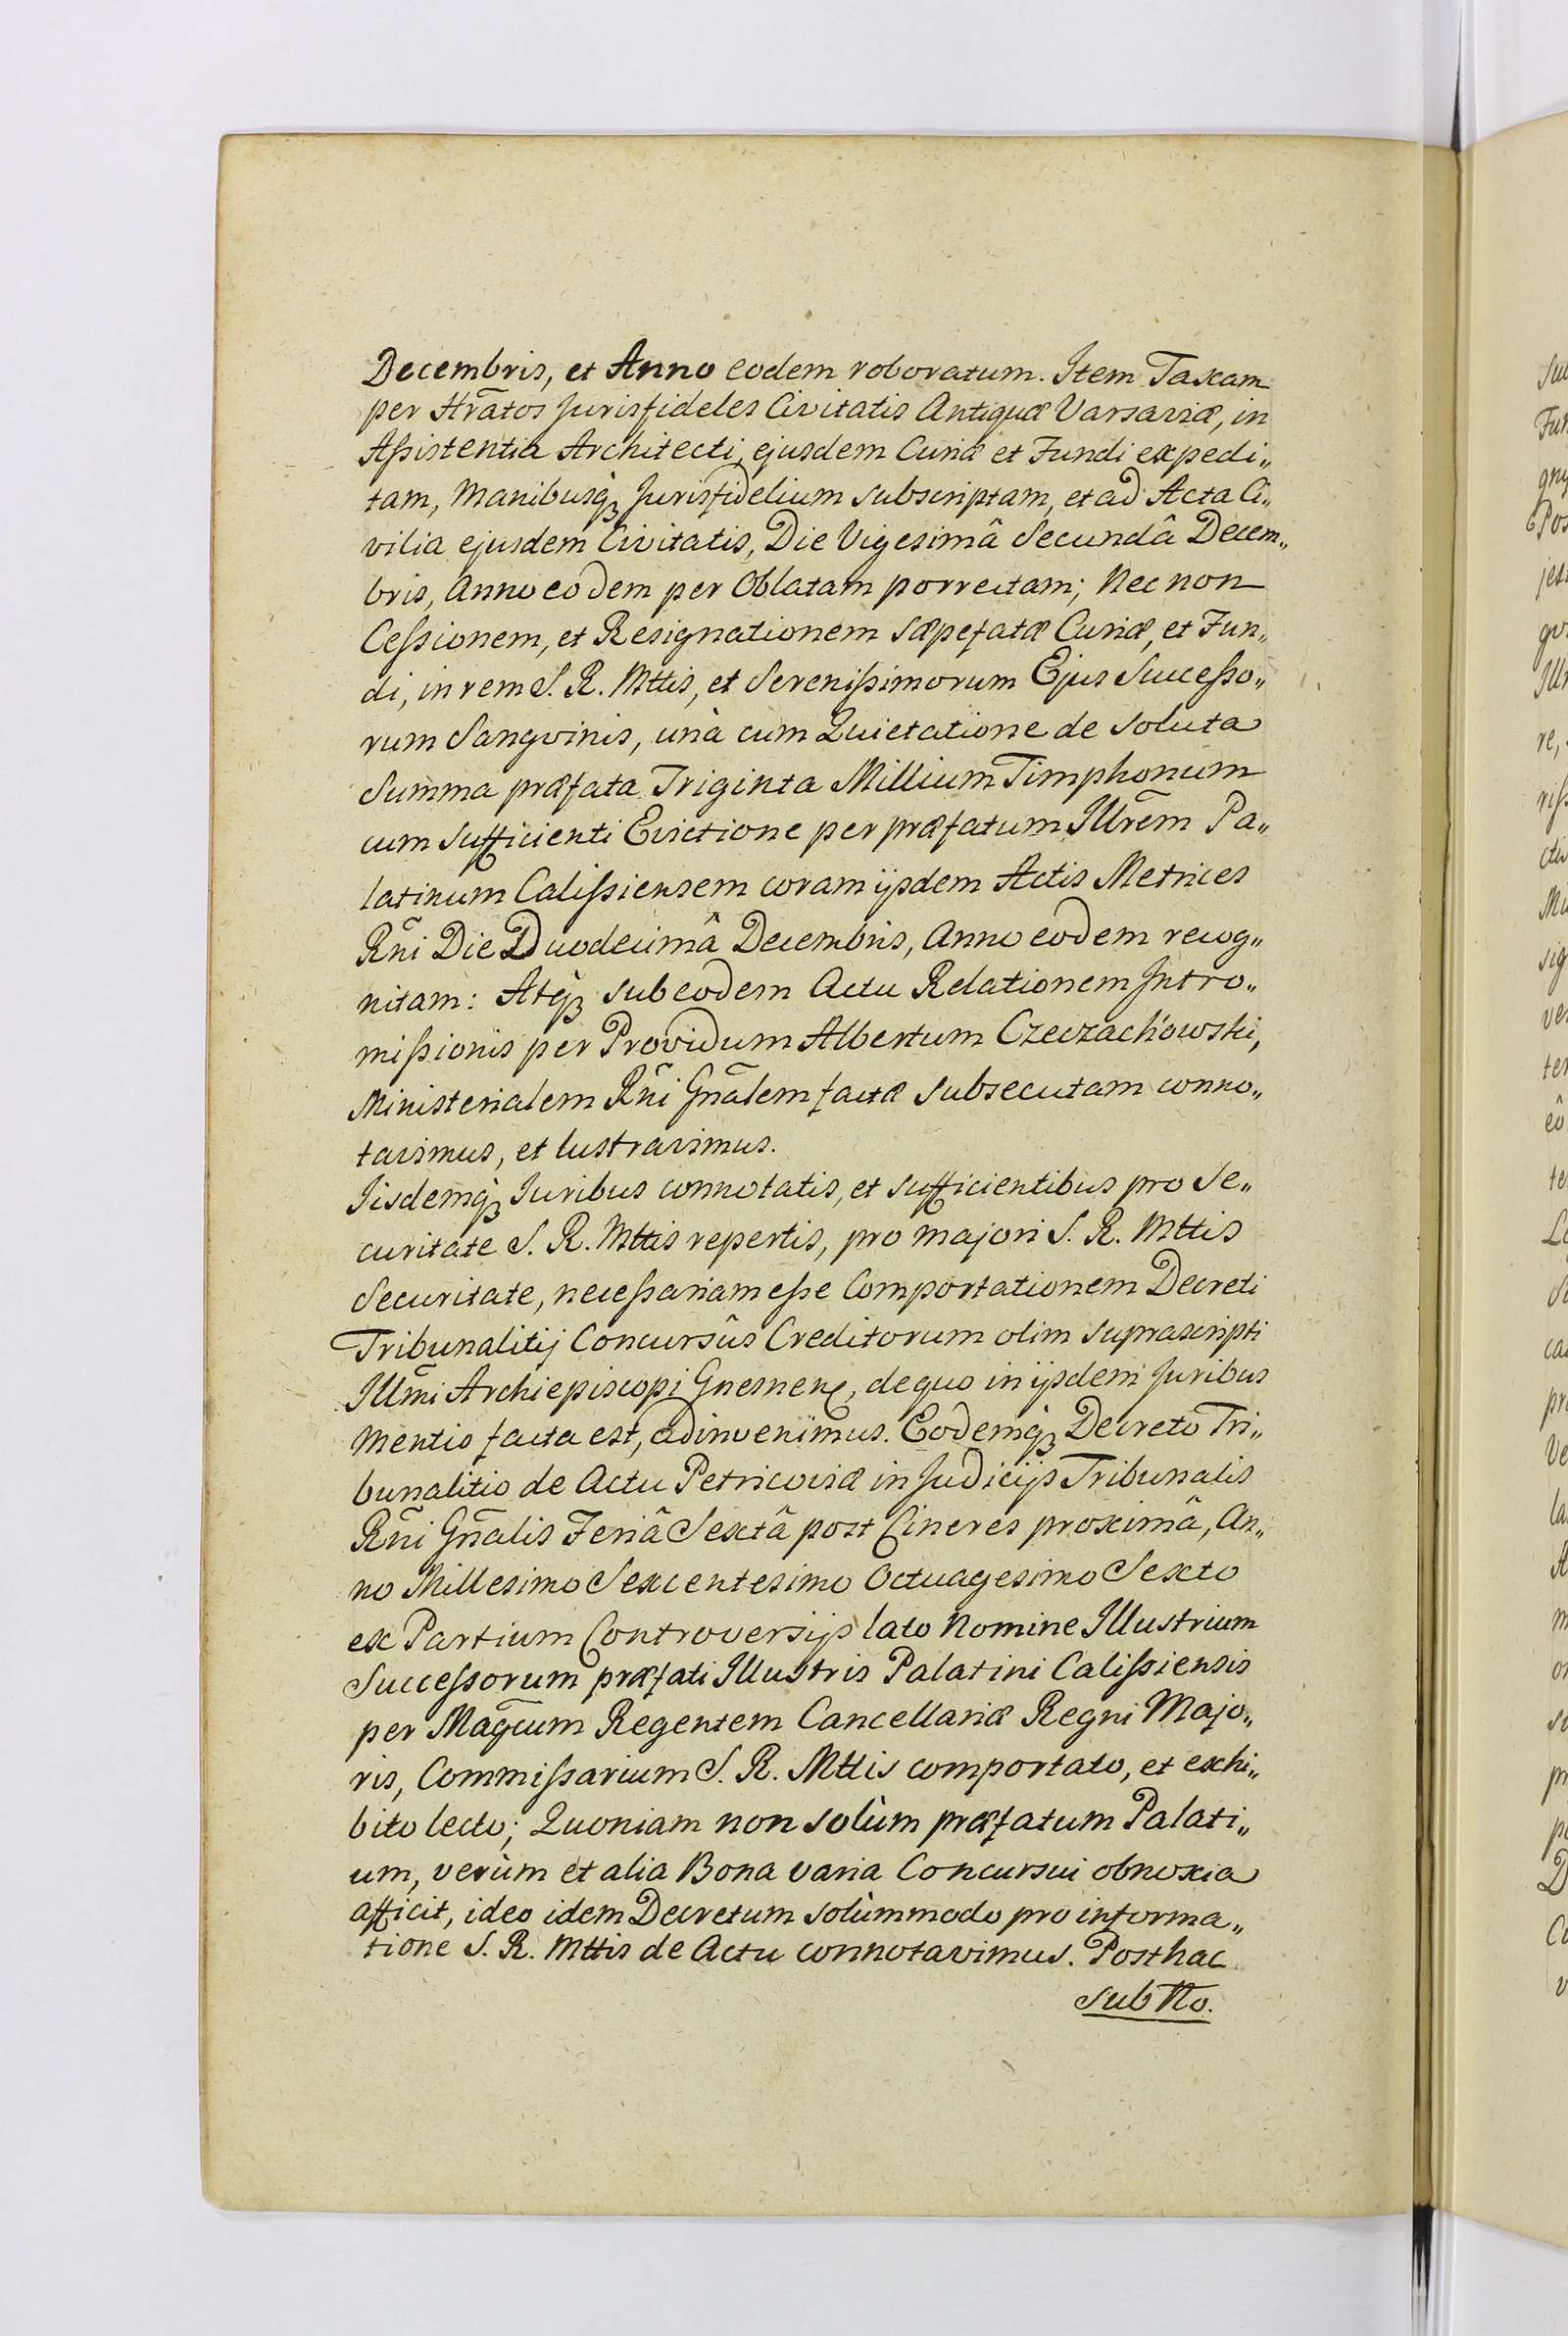 Decembris, et Anno eodem roboratum. Item Taxam
per Hr̃atos Jurisfideles Civitatis Antiquæ Varsaviæ, in
Aſsistentia Architecti, ejusdem Curiæ et Fundi expedi„
tam, Manibusq̀ꝫ Jurisfidelium subscriptam, et ad Acta Ci„
vilia ejusdem Civitatis, Die Vigesimâ Secundâ Decem„
bris, Anno eodem per Oblatam porrectam; Nec non
Ceſsionem, et Resignationem sæpefatæ Curiæ, et Fun„
di, in rem S. R. Mttis, et Sereniſsimorum Ejus Succeſso„
rum Sangvinis, unà cum Quietatione de soluta
Summa præfata Triginta Millium Timphonum
cum sufficienti Evictione per præfatum Illr̃em Pa„
latinum Caliſsiensem coram ijsdem Actis Metrices
Rñi Die Duodecimâ Decembris, Anno eodem recog„
nitam: Atq̀ꝫ sub eodem Actu Relationem Intro„
miſsionis per Providum Albertum Czeczachowski,
Ministerialem Rñi Gñalem factæ subsecutam conno„
tavimus, et lustravimus.
Iisdemq̀ꝫ Juribus connotatis, et sufficientibus pro Se„
curitate S. R. Mttis repertis, pro majori S. R. Mttis
Securitate, neceſsariam eſse Comportationem Decreti
Tribunalitij Concursûs Creditorum olim suprascripti
Illm̃i Archiepiscopi Gnesnen, de quo in ijsdem Juribus
Mentio facta est, adinvenimus. Eodemq̀ꝫ Decreto Tri„
bunalitio de Actu Petricoviæ in Judicijs Tribunalis
Rñi Gñalis Feriâ Sextâ post Cineres proximâ, An„
no Millesimo Sexcentesimo Octuagesimo Sexto
ex Partium Controversijs lato Nomine Illustrium
Succeſsorum præfati Illustris Palatini Caliſsiensis
per Mag̃cum Regentem Cancellariæ Regni Majo„
ris, Commiſsarium S. R. Mttis comportato, et exhi„
bito lecto; Quoniam non solùm præfatum Palati„
um, verùm et alia Bona varia Concursui obnoxia
afficit, ideo idem Decretum solùmmodo pro informa„
tione S. R. Mttis de Actu connotavimus. Posthac
sub No.